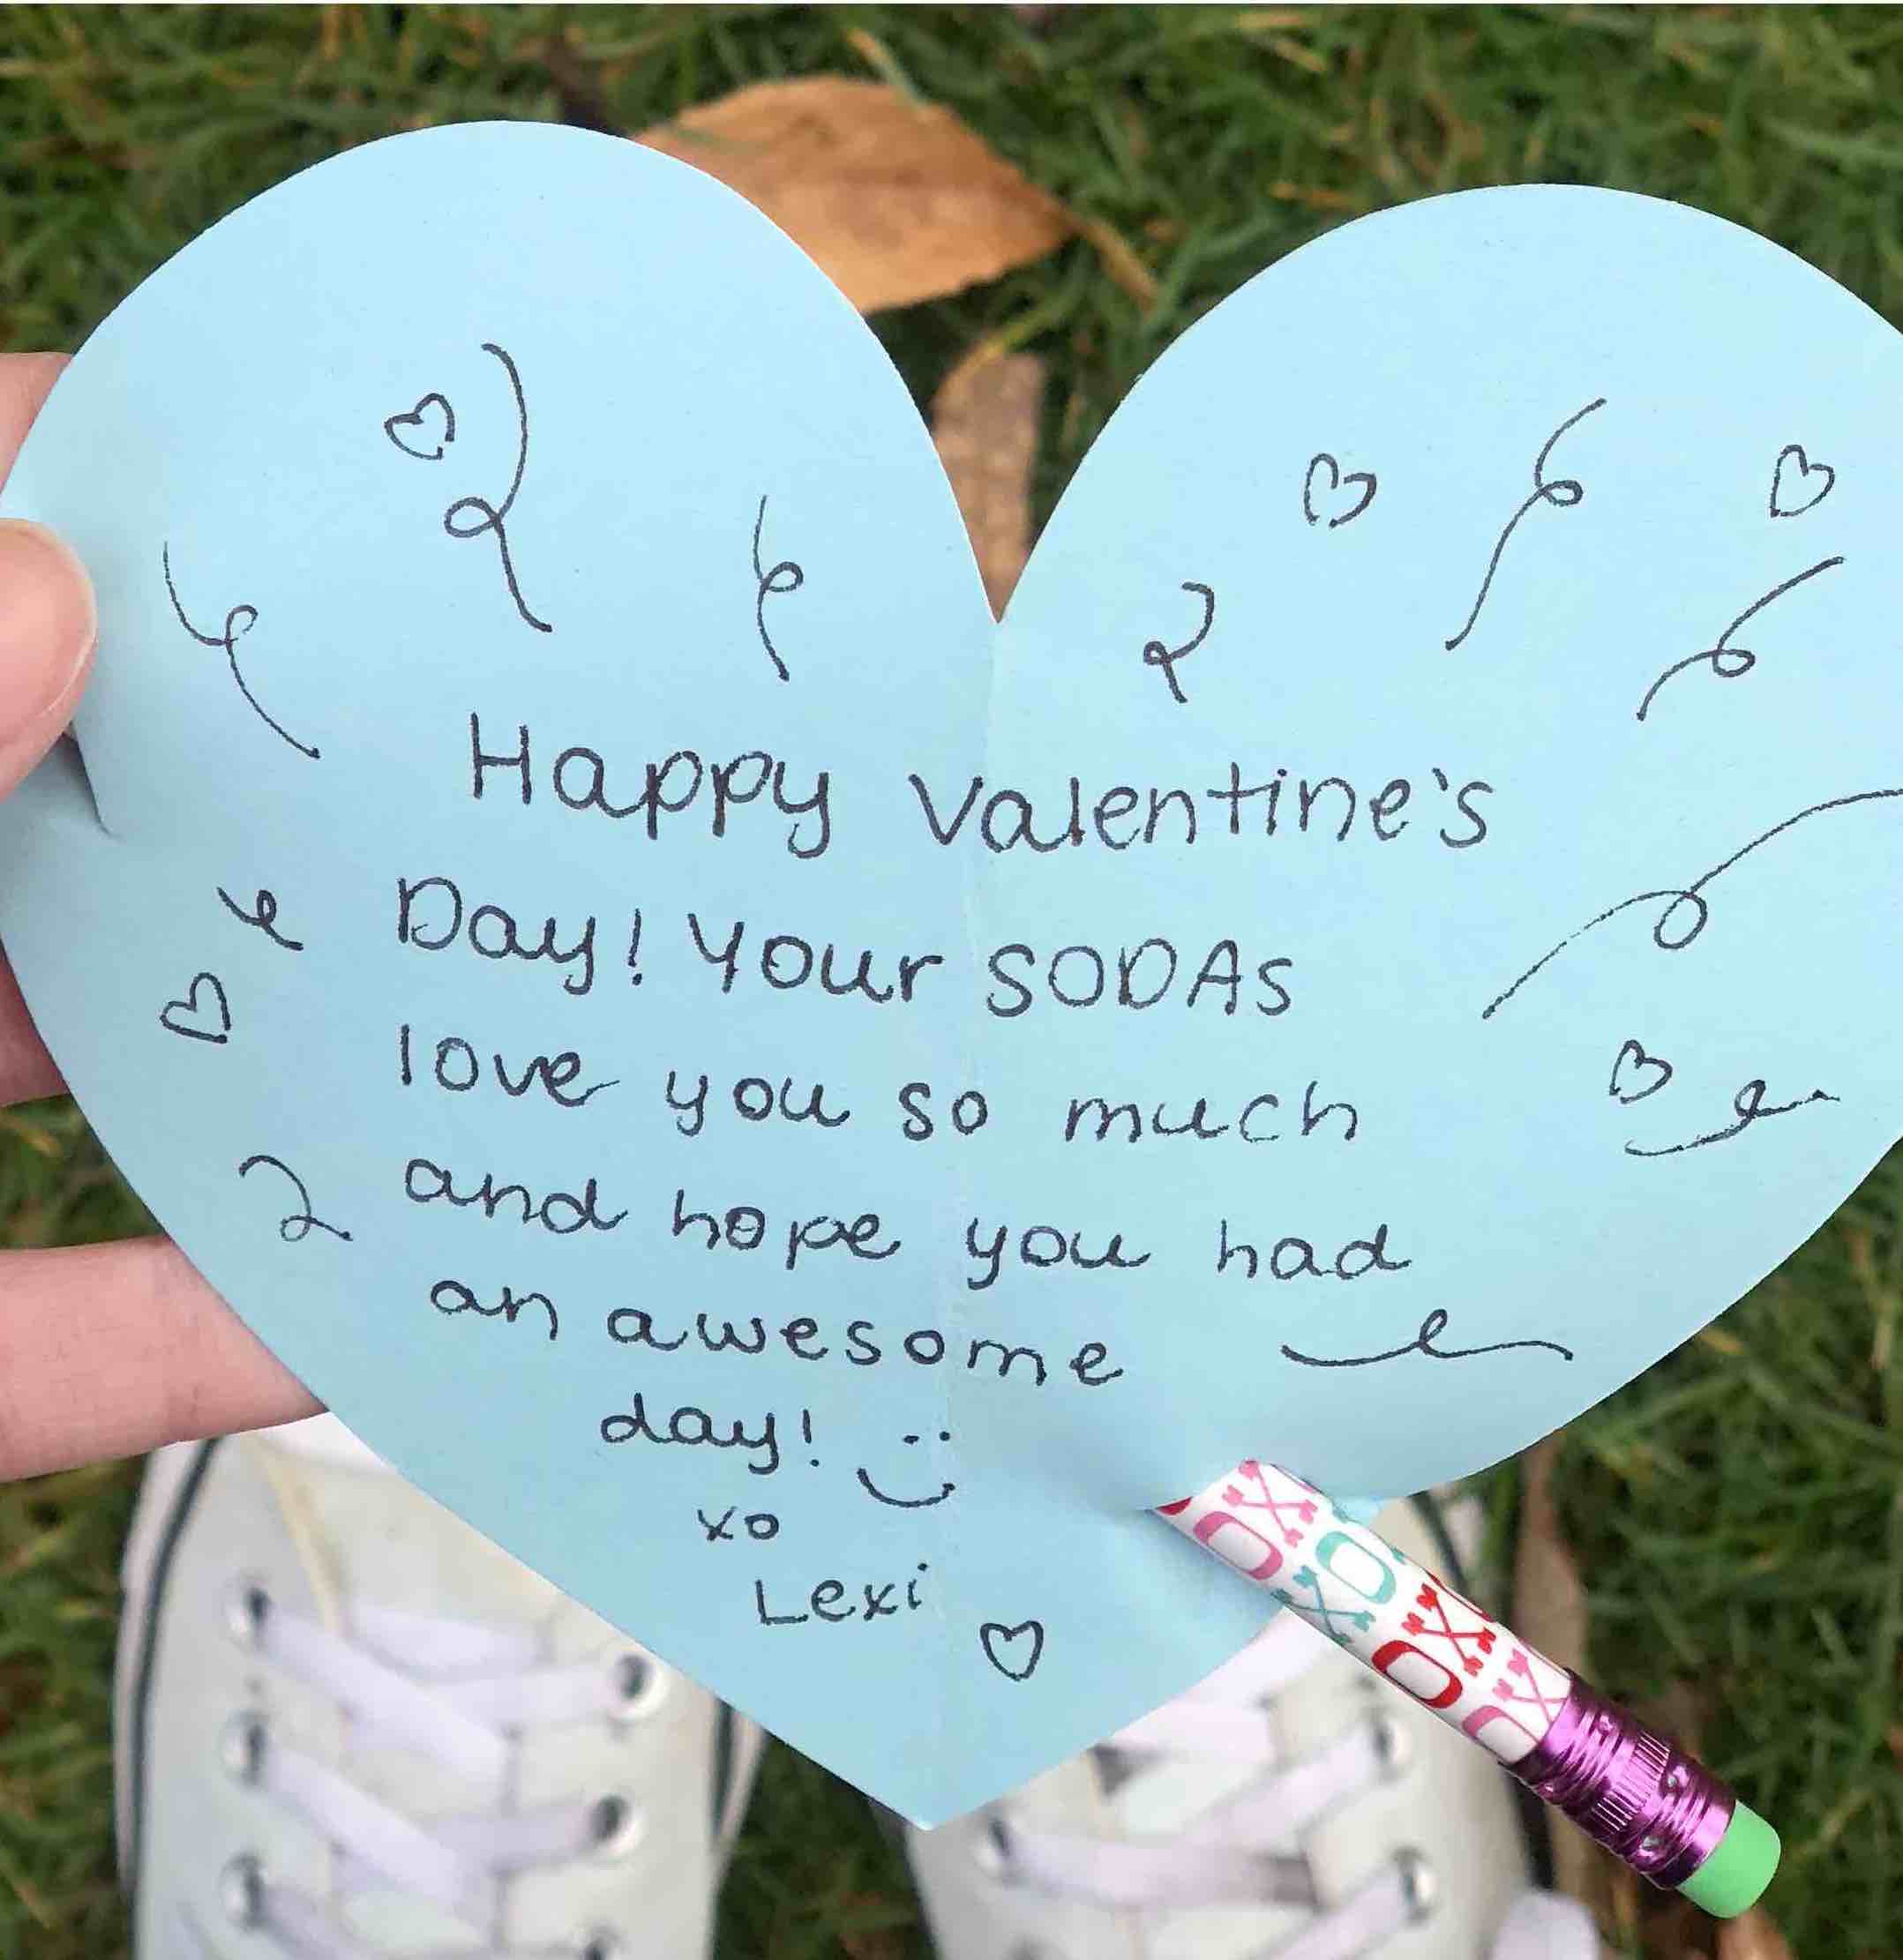 Happy Valentine's
Day! Your SODAs
love you so much
and hope you had
an awesome
day! :)
xo
Lexi
OXOXOXOX